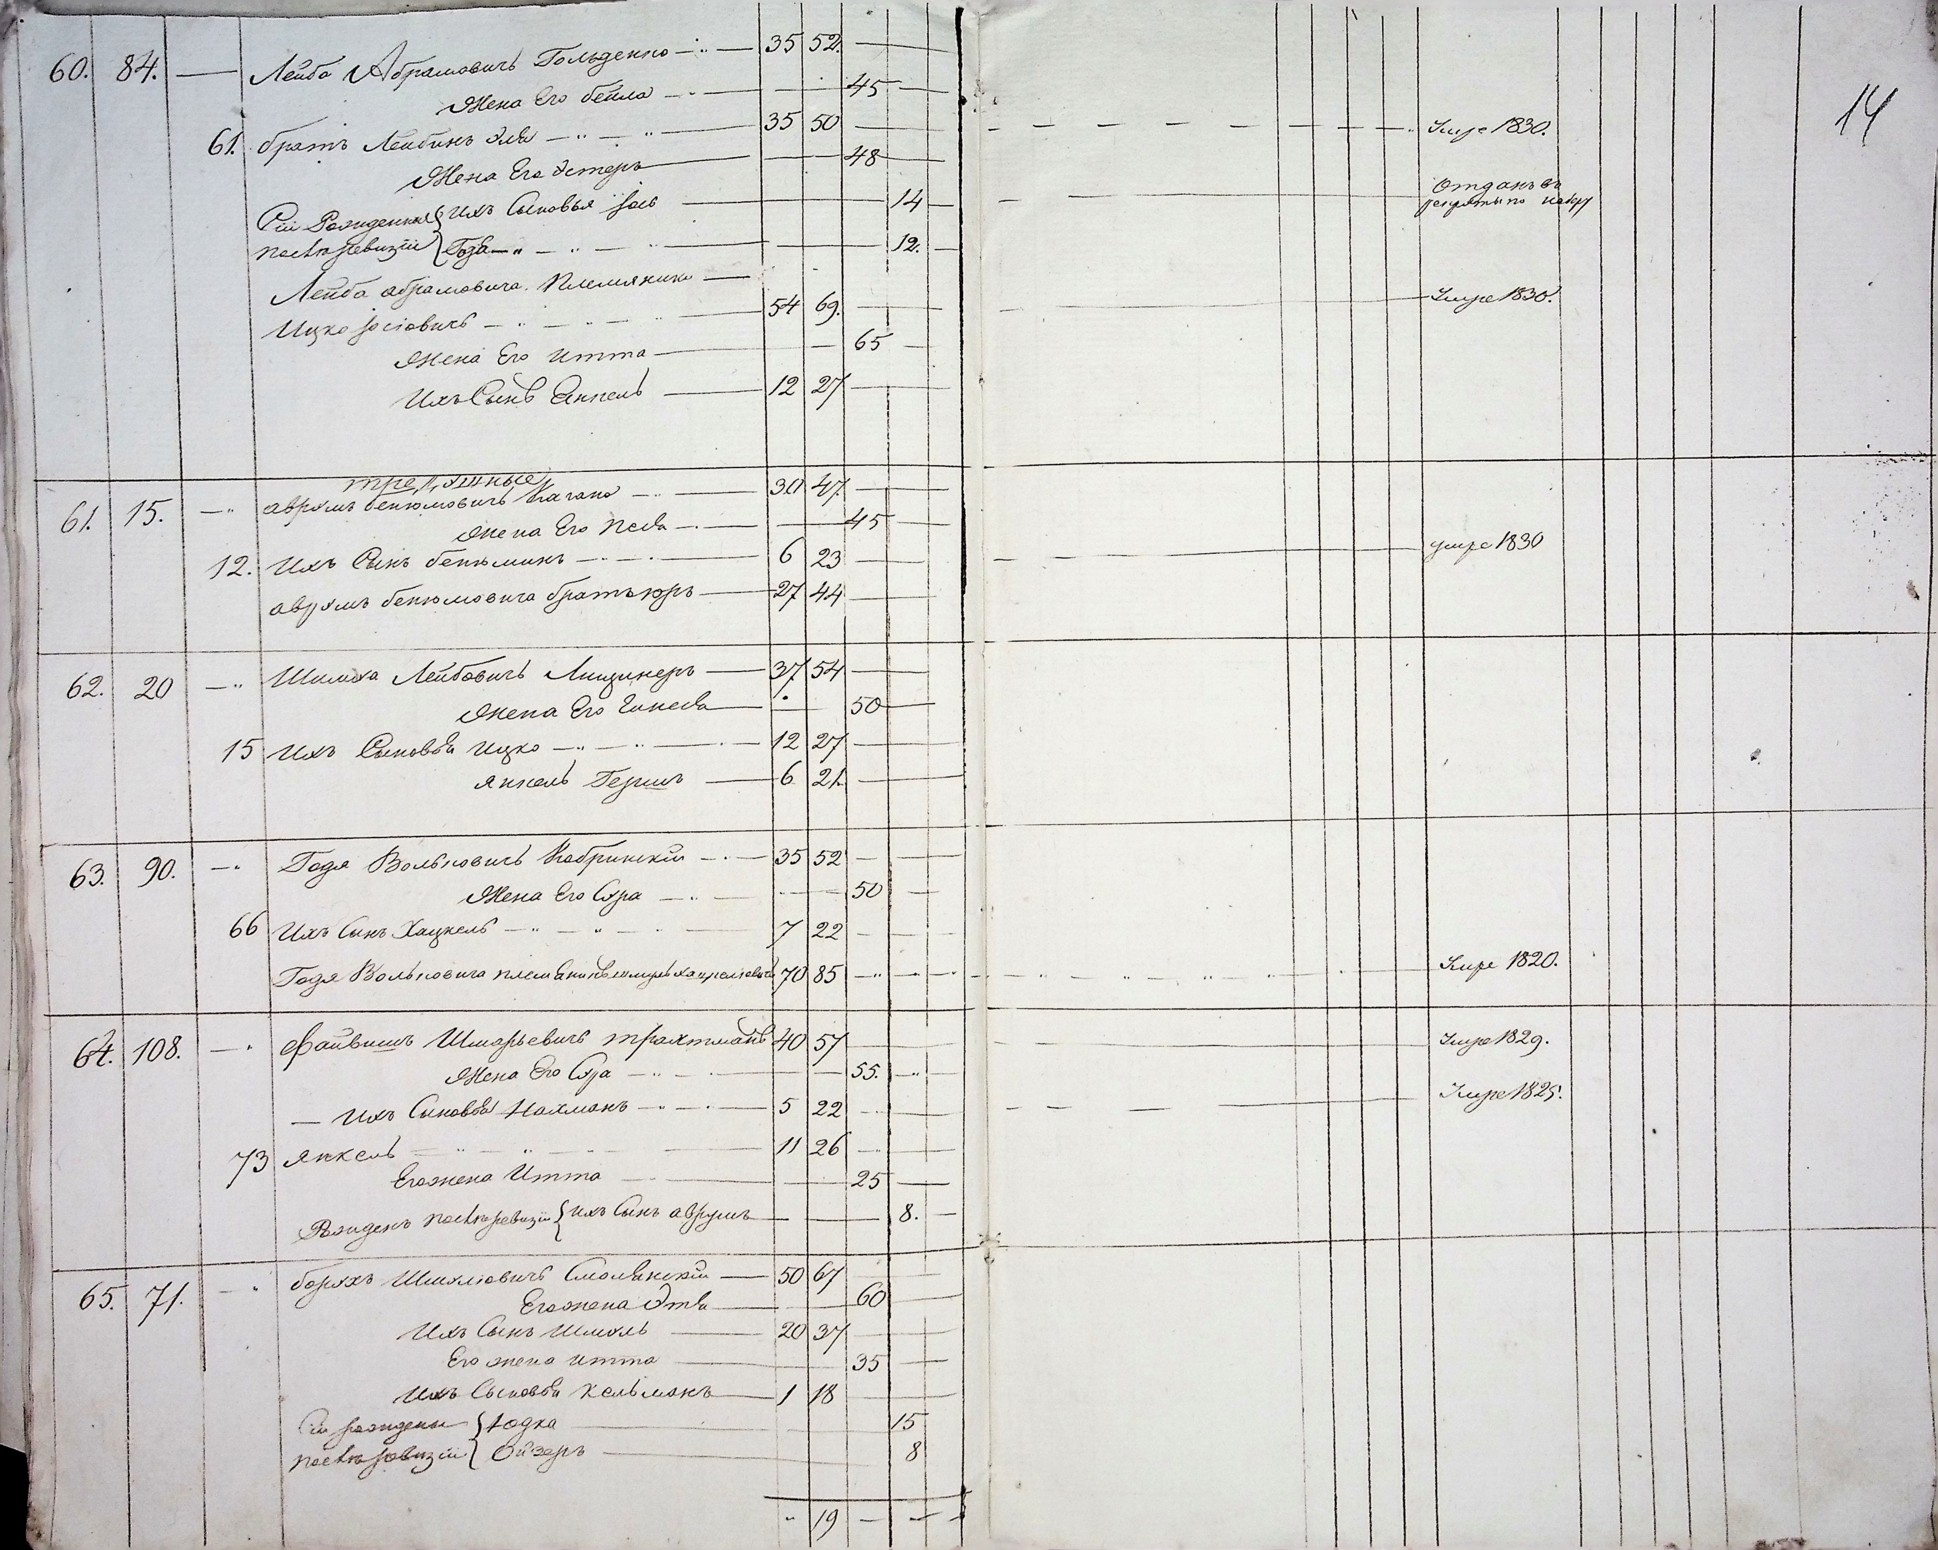 14
60. 84. — Лейба Абрамовичъ Гольденко — 35 52.
Жена Его бейла — 45
61. братъ Лейбинъ Эля — 35 50 — Умре 1830.
Жена Его Эстеръ — 48
Сіи Рожденныя { Ихъ Сыновья Іось — 14 — Отданъ въ рекруты по
послѣ ревизіи { — 12.
Лейба абрамовича Племянико —
Ицко Іосіовичъ — 54 69. — Умре 1830.
Жена Его Итта — 65
Ихъ Сынъ Янкель — 12 27
61. 15. — аврумъ бенюмовичъ Кагано — 30 47.
Жена Его Песя — 45
12. Ихъ Сынъ бенюминъ — 6 23 — умре 1830
аврумъ бенюмовича братъ юръ — 27 44
62. 20 — Шимха Лейбовичъ Лищинеръ — 37 54
Жена Его — 50
15 Ихъ Сыновья Ицко — 12 27
Янкель Гершъ — 6 21.
63. 90. — Годя Вольковичъ Кобринскій — 35 52
Жена Его Сура — 50
66 Ихъ Сынъ Хацкель — 7 22
Годя Вольковича — 70 85 — Умре 1820.
64. 108. — Файвишъ Шмарьевичъ трахтманъ 40 57 — Умре 1829.
Жена Его Сура — 55.
— Ихъ Сыновья Нахманъ — 5 22 — Умре 1825.
73 Янкель — 11 26
Его жена Итта — 25
Рожденъ послѣ ревизіи { Ихъ Сынъ аврумъ — 8.
65. 71. — борухъ Шмулювичъ Смолянскій — 50 67
Его жена Этля — 60
Ихъ Сынъ Шмуль — 20 37
Его жена итта — 35
Ихъ Сыновья Кельманъ — 1 18
Сіи рождены { Юдка — 15
послѣ ревизіи { Ойзеръ — 8
19